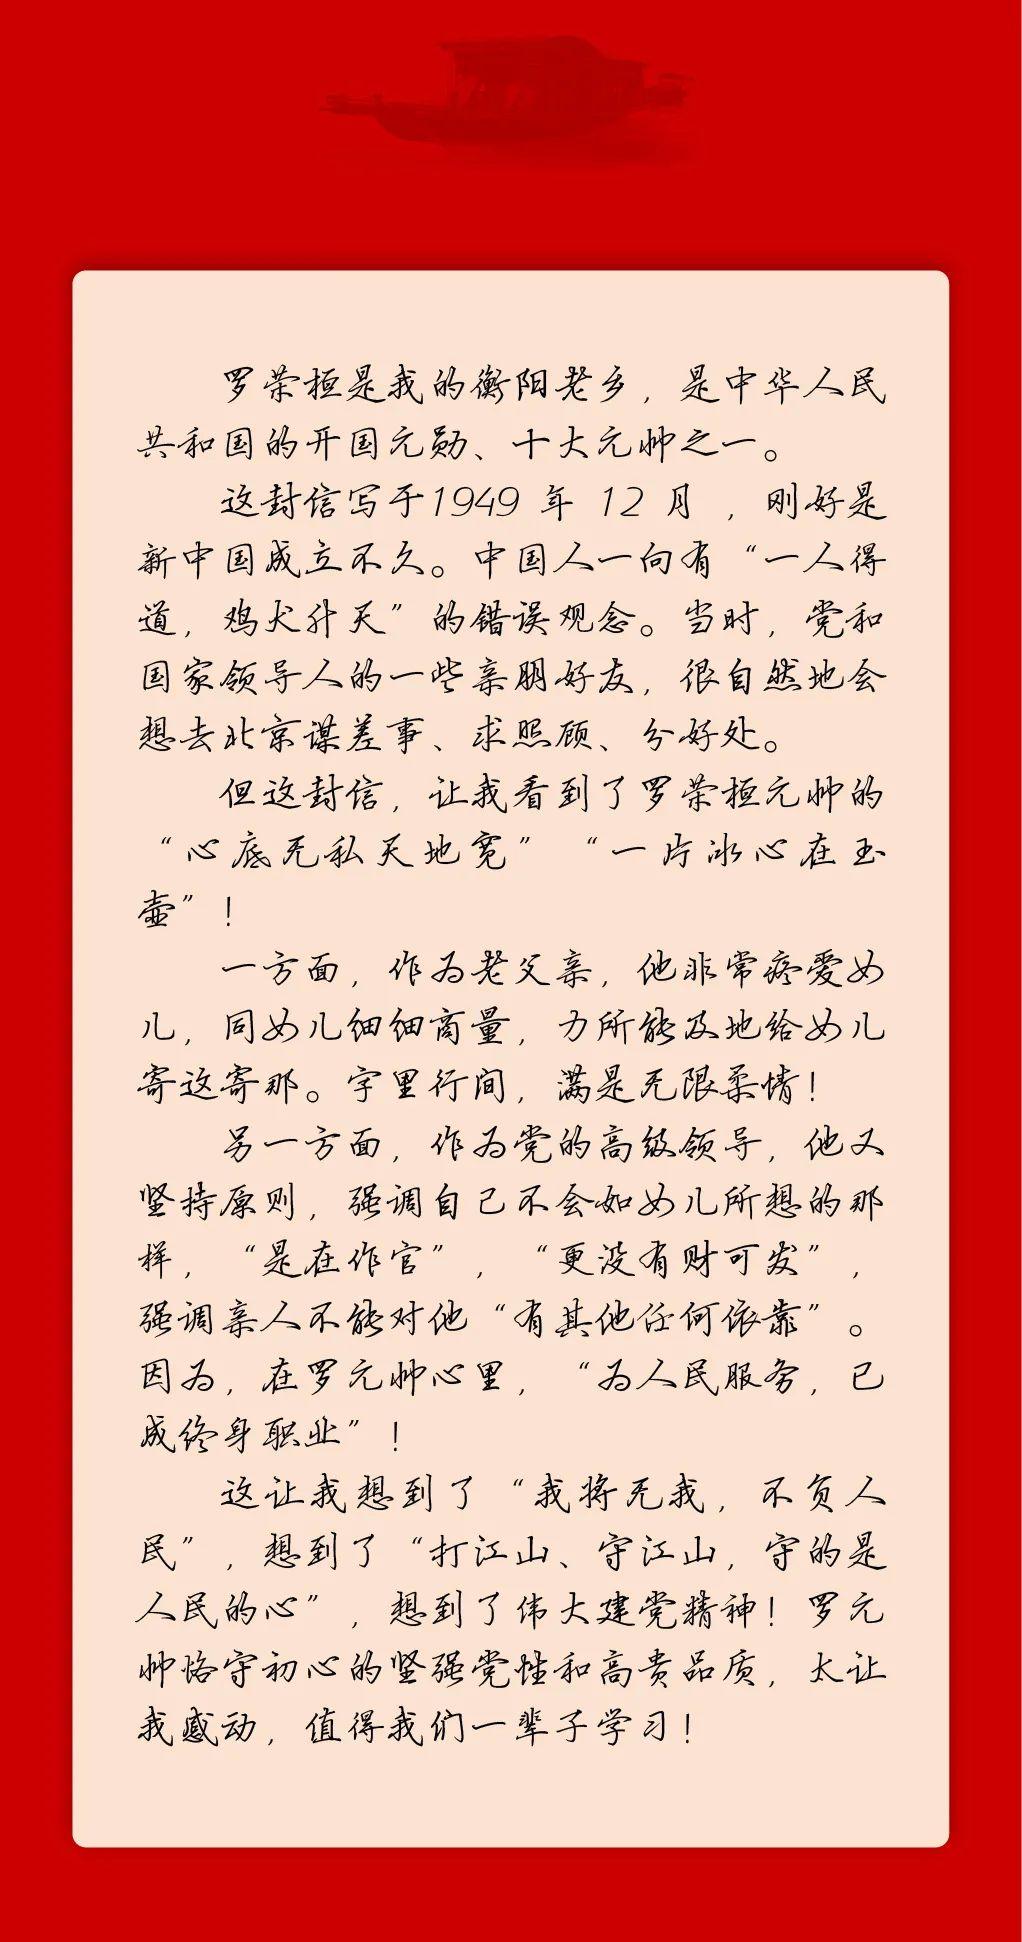 罗荣桓是我的衡阳老乡，是中华人民
共和国的开国元勋、十大元帅之一。
这封信写于1949 年 12 月 ，刚好是
新中国成立不久。中国人一向有“一人得
道，鸡犬升天”的错误观念。当时，党和
国家领导人的一些亲朋好友，很自然地会
想去北京谋差事、求照顾、分好处。
但这封信，让我看到了罗荣桓元帅的
“心底无私天地宽”“一片冰心在玉
壶”！
一方面，作为老父亲，他非常疼爱女
儿，同女儿细细商量，力所能及地给女儿
寄这寄那。字里行间，满是无限柔情！
另一方面，作为党的高级领导，他又
坚持原则，强调自己不会如女儿所想的那
样，“是在作官”，“更没有财可发”，
强调亲人不能对他“有其他任何依靠”。
因为，在罗元帅心里，“为人民服务，已
成终身职业”！
这让我想到了“我将无我，不负人
民”，想到了“打江山、守江山，守的是
人民的心”，想到了伟大建党精神！罗元
帅恪守初心的坚强党性和高贵品质，太让
我感动，值得我们一辈子学习！